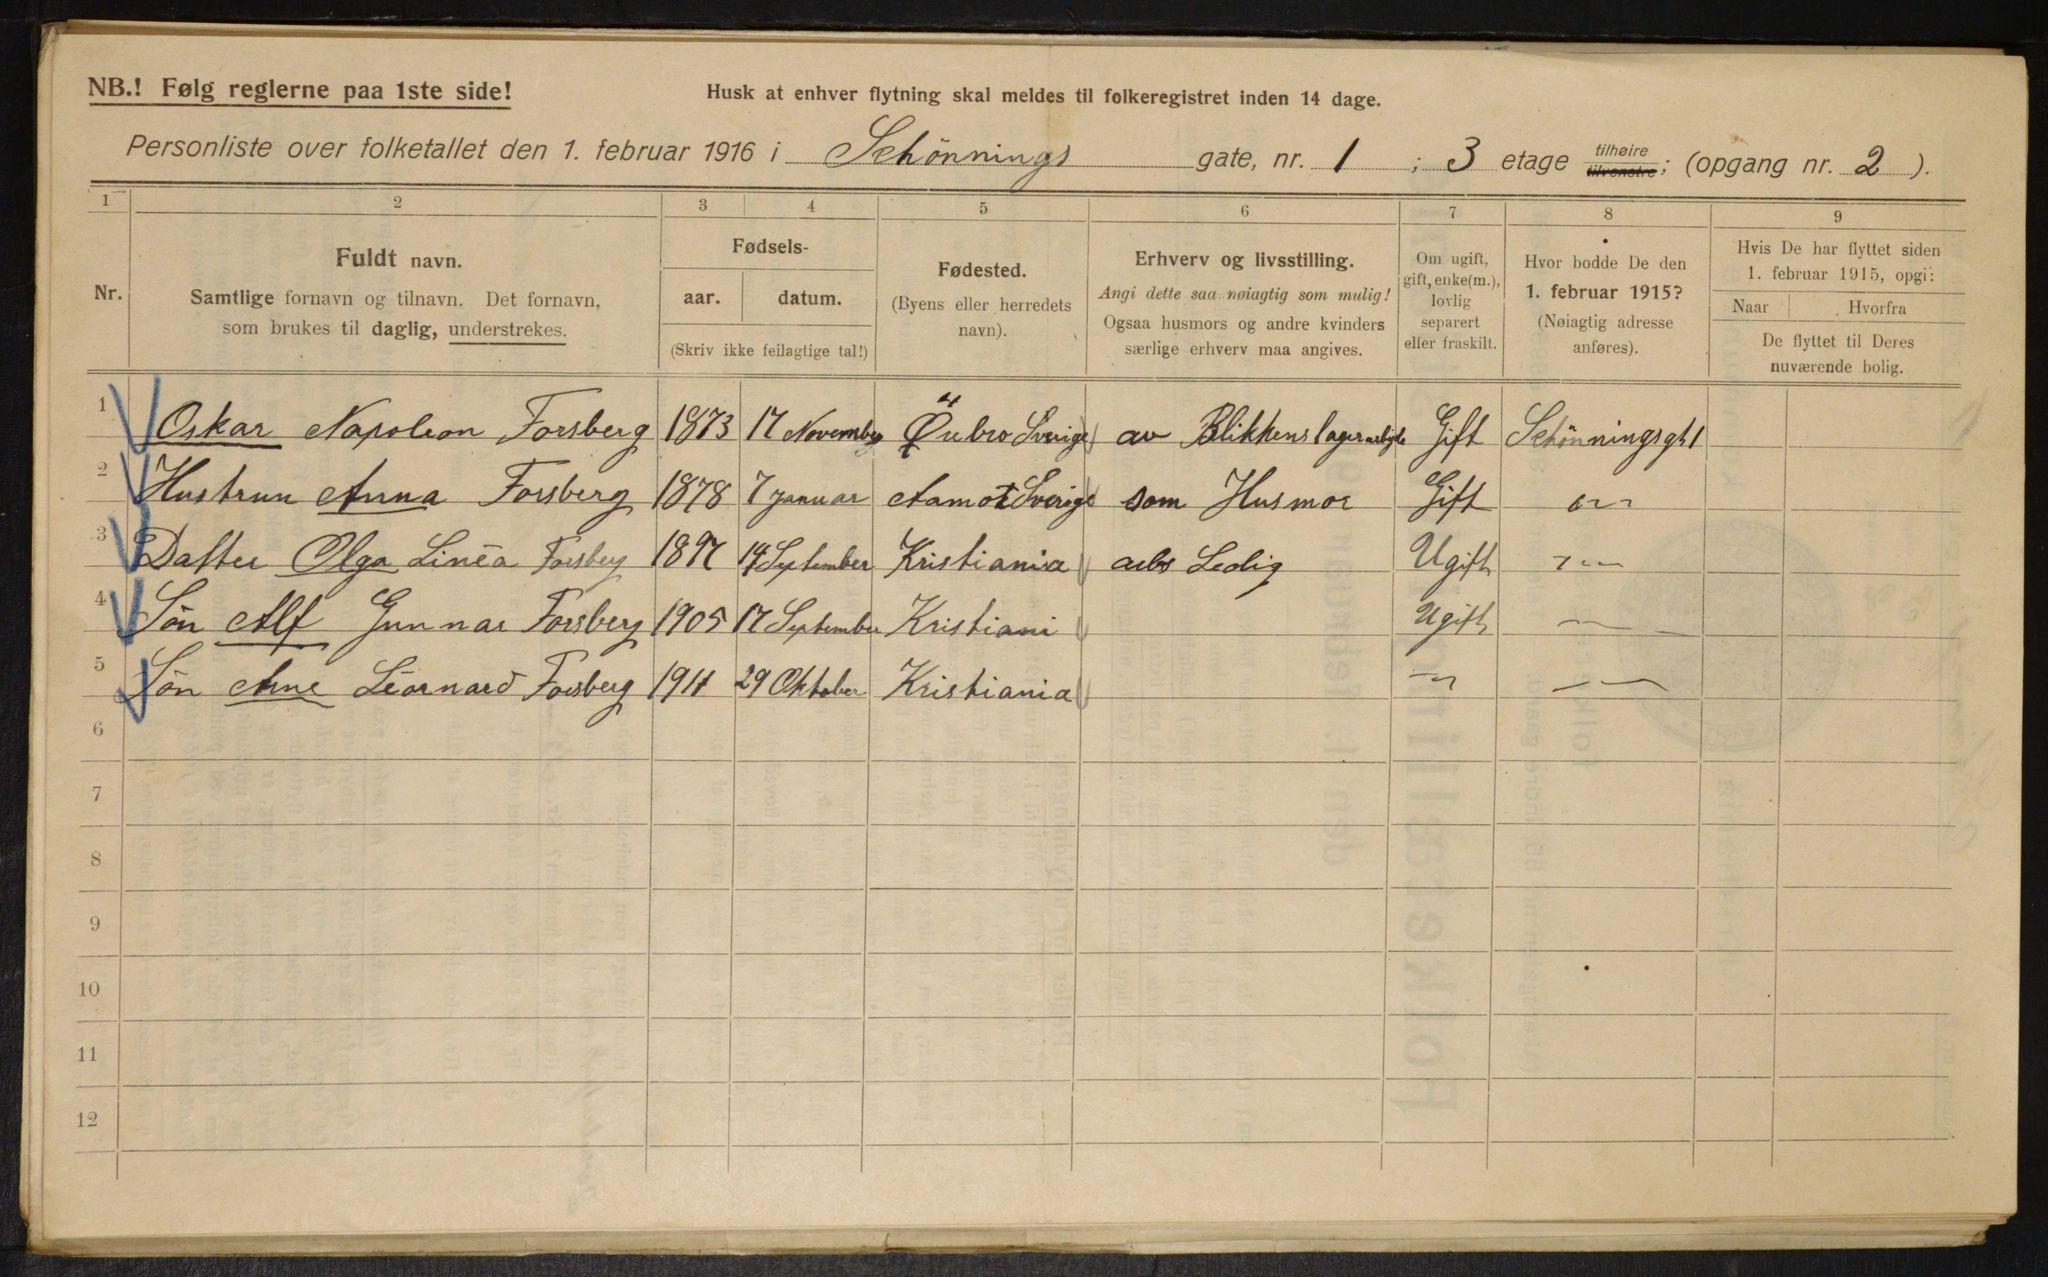 NB.! Følg reglerne paa 1ste side!
Husk at enhver flytning skal meldes til folkeregistret inden 14 dage.
Personliste over folketallet den 1. februar 1916 i Schönnings gate, nr. 1 ; 3 etage tilhøire tilvenstre; (opgang nr. 2 ).
1 2 3 4 5 6 7 8 9
Nr.
Fuldt navn.
Samtlige fornavn og tilnavn. Det fornavn,
som brukes til daglig, understrekes.
Fødsels-
aar. datum.
(Skriv ikke feilagtige tal!)
Fødested.
(Byens eller herredets
navn).
Erhverv og livsstilling.
Angi dette saa nøiagtig som mulig!
Ogsaa husmors og andre kvinders
særlige erhverv maa angives.
Om ugift,
gift, enke(m.),
lovlig
separert
eller fraskilt.
Hvor bodde De den
1. februar 1915?
(Nøiagtig adresse
anføres).
Hvis De har flyttet siden
1. februar 1915, opgi:
Naar Hvorfra
De flyttet til Deres
nuværende bolig.
1 Oskar Napoleon Forsberg 1873 17 November Sverige av Gift Schönningsgt 1
2 Hustrun Anna Forsberg 1878 7 Januar Aamot Sverige som Husmor Gift
3 Datter Olga Linéa Forsberg 1897 14 September Kristiania Ledig Ugift
4 Sön Alf Gunnar Forsberg 1905 17 September Kristiani Ugift
5 Sön Arne Léornard Forsberg 1911 29 Oktober Kristiania
6
7
8
9
10
11
12